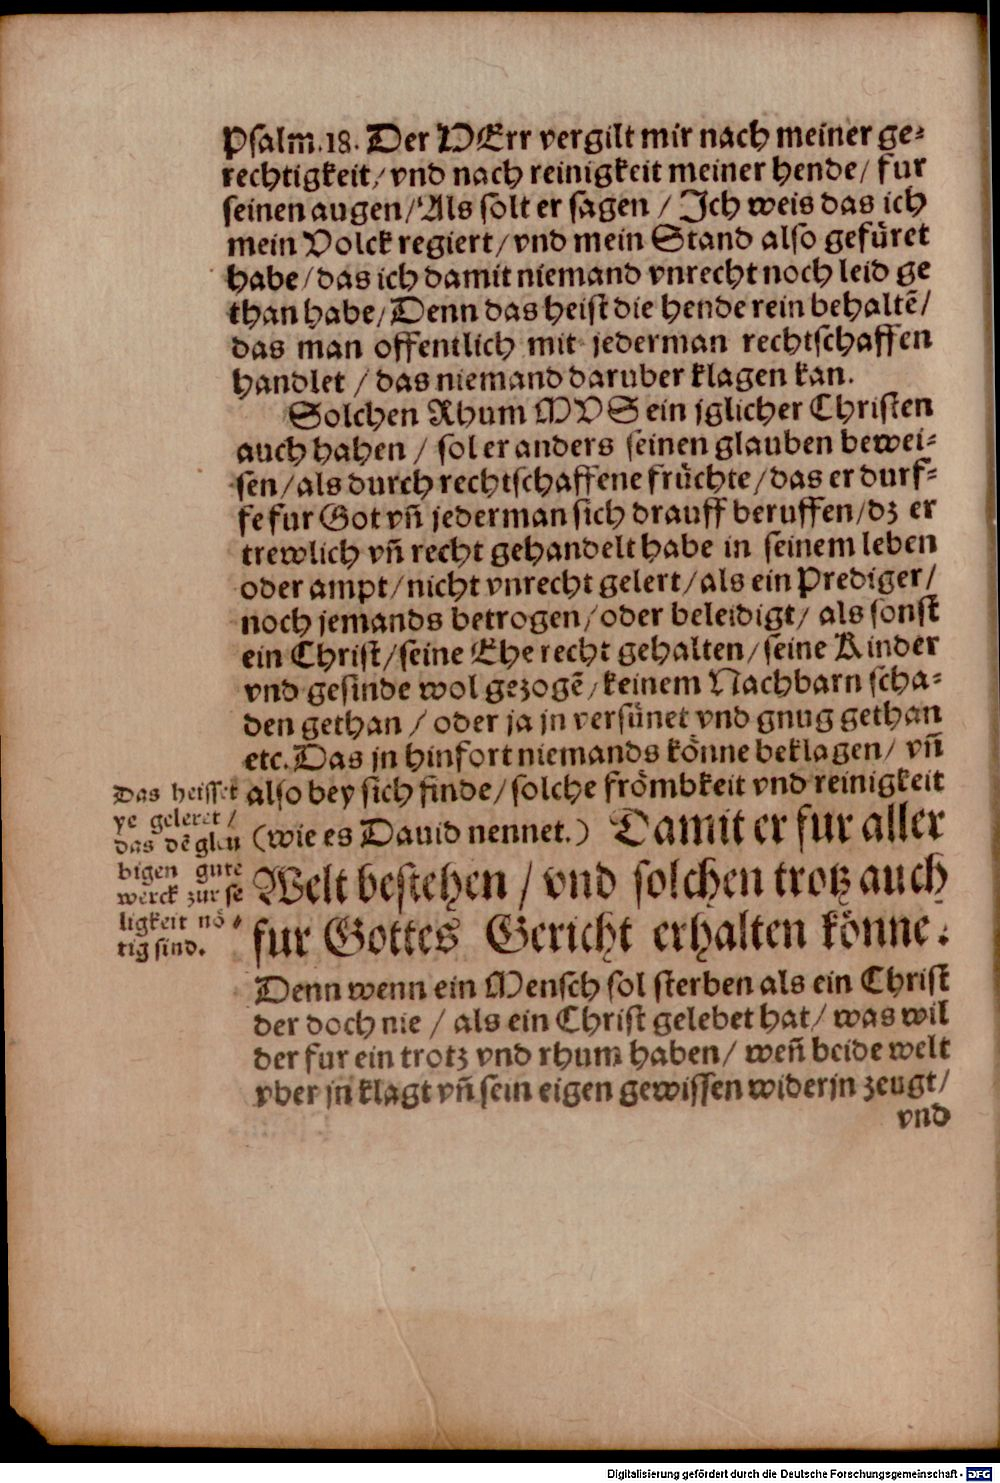 Psalm.18. Der HErr vergilt mir nach meiner ge⸗
rechtigkeit/ vnd nach reinigkeit meiner hende/ fur
seinen augen/ Als solt er sagen / Ich weis das ich
mein Volck regiert/ vnd mein Stand also gefüret
habe/ das ich damit niemand vnrecht noch leid ge
than habe/ Denn das heist die hende rein behaltẽ/
das man offentlich mit jederman rechtschaffen
handlet / das niemand daruber klagen kan.
Solchen Rhum MVS ein jglicher Christen
auch hahen / sol er anders seinen glauben bewei⸗
sen/ als durch rechtschaffene früchte/ das er durf⸗
fe fur Got vñ jederman sich drauff beruffen/ dz er
trewlich vñ recht gehandelt habe in seinem leben
oder ampt/ nicht vnrecht gelert/ als ein Prediger/
noch jemands betrogen/ oder beleidigt/ als sonst
ein Christ/ seine Ehe recht gehalten/ seine Kinder
vnd gesinde wol gezogẽ/ keinem Nachbarn scha⸗
den gethan / oder ja jn versünet vnd gnug gethan
etc. Das jn hinfort niemands könne beklagen/ vñ
also bey sich finde/ solche frömbkeit vnd reinigkeit
(wie es Dauid nennet.) Damit er fur aller
Welt bestehen / vnd solchen trotz auch
fur Gottes Gericht erhalten könne.
Denn wenn ein Mensch sol sterben als ein Christ
der doch nie / als ein Christ gelebet hat/ was wil
der fur ein trotz vnd rhum haben/ weñ beide welt
vber jn klagt vñ sein eigen gewissen wider jn zeugt/
vnd
Das heisset
ye geleret /
das dẽ gleu
bigen gute
werck zur se
ligkeit nö⸗
tig sind.
Digitalisierung gefördert durch die Deutsche Forschungsgemeinschaft - DFG